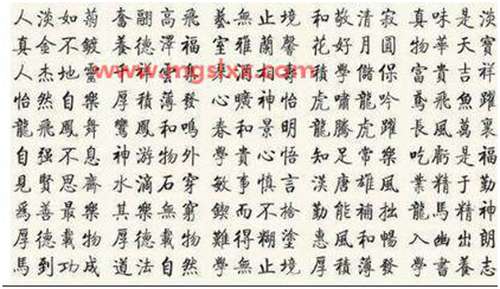 人淡如菊 奮翮高飛 藝無止境 和敬清寂 真味是淡
真金不鍍 養德澤福 室雅蘭馨 花好月圓 物華天寶
人杰地靈 學儲 富貴吉祥
www.mgslxx.com
怡然自樂 厚積薄發 心曠神怡 虎嘯龍吟 鳶飛魚躍
龍飛鳳舞 鸞鳳和鳴 春和景明 龍騰虎躍 長風萬裏
自强不息 神游物外 和貴心悟 知足常樂 吃虧是福
見賢思齊 水滴石穿 學敏事慎言 漢唐雄風 業精于勤
爲善最樂 其樂無窮 鍥而不捨 勤能補拙 龍馬精神
厚德載物 厚德載物 難得糊塗 惠風和暢 入幽出朗
馬到功成 道法自然 學無止境 厚積薄發 學書養志